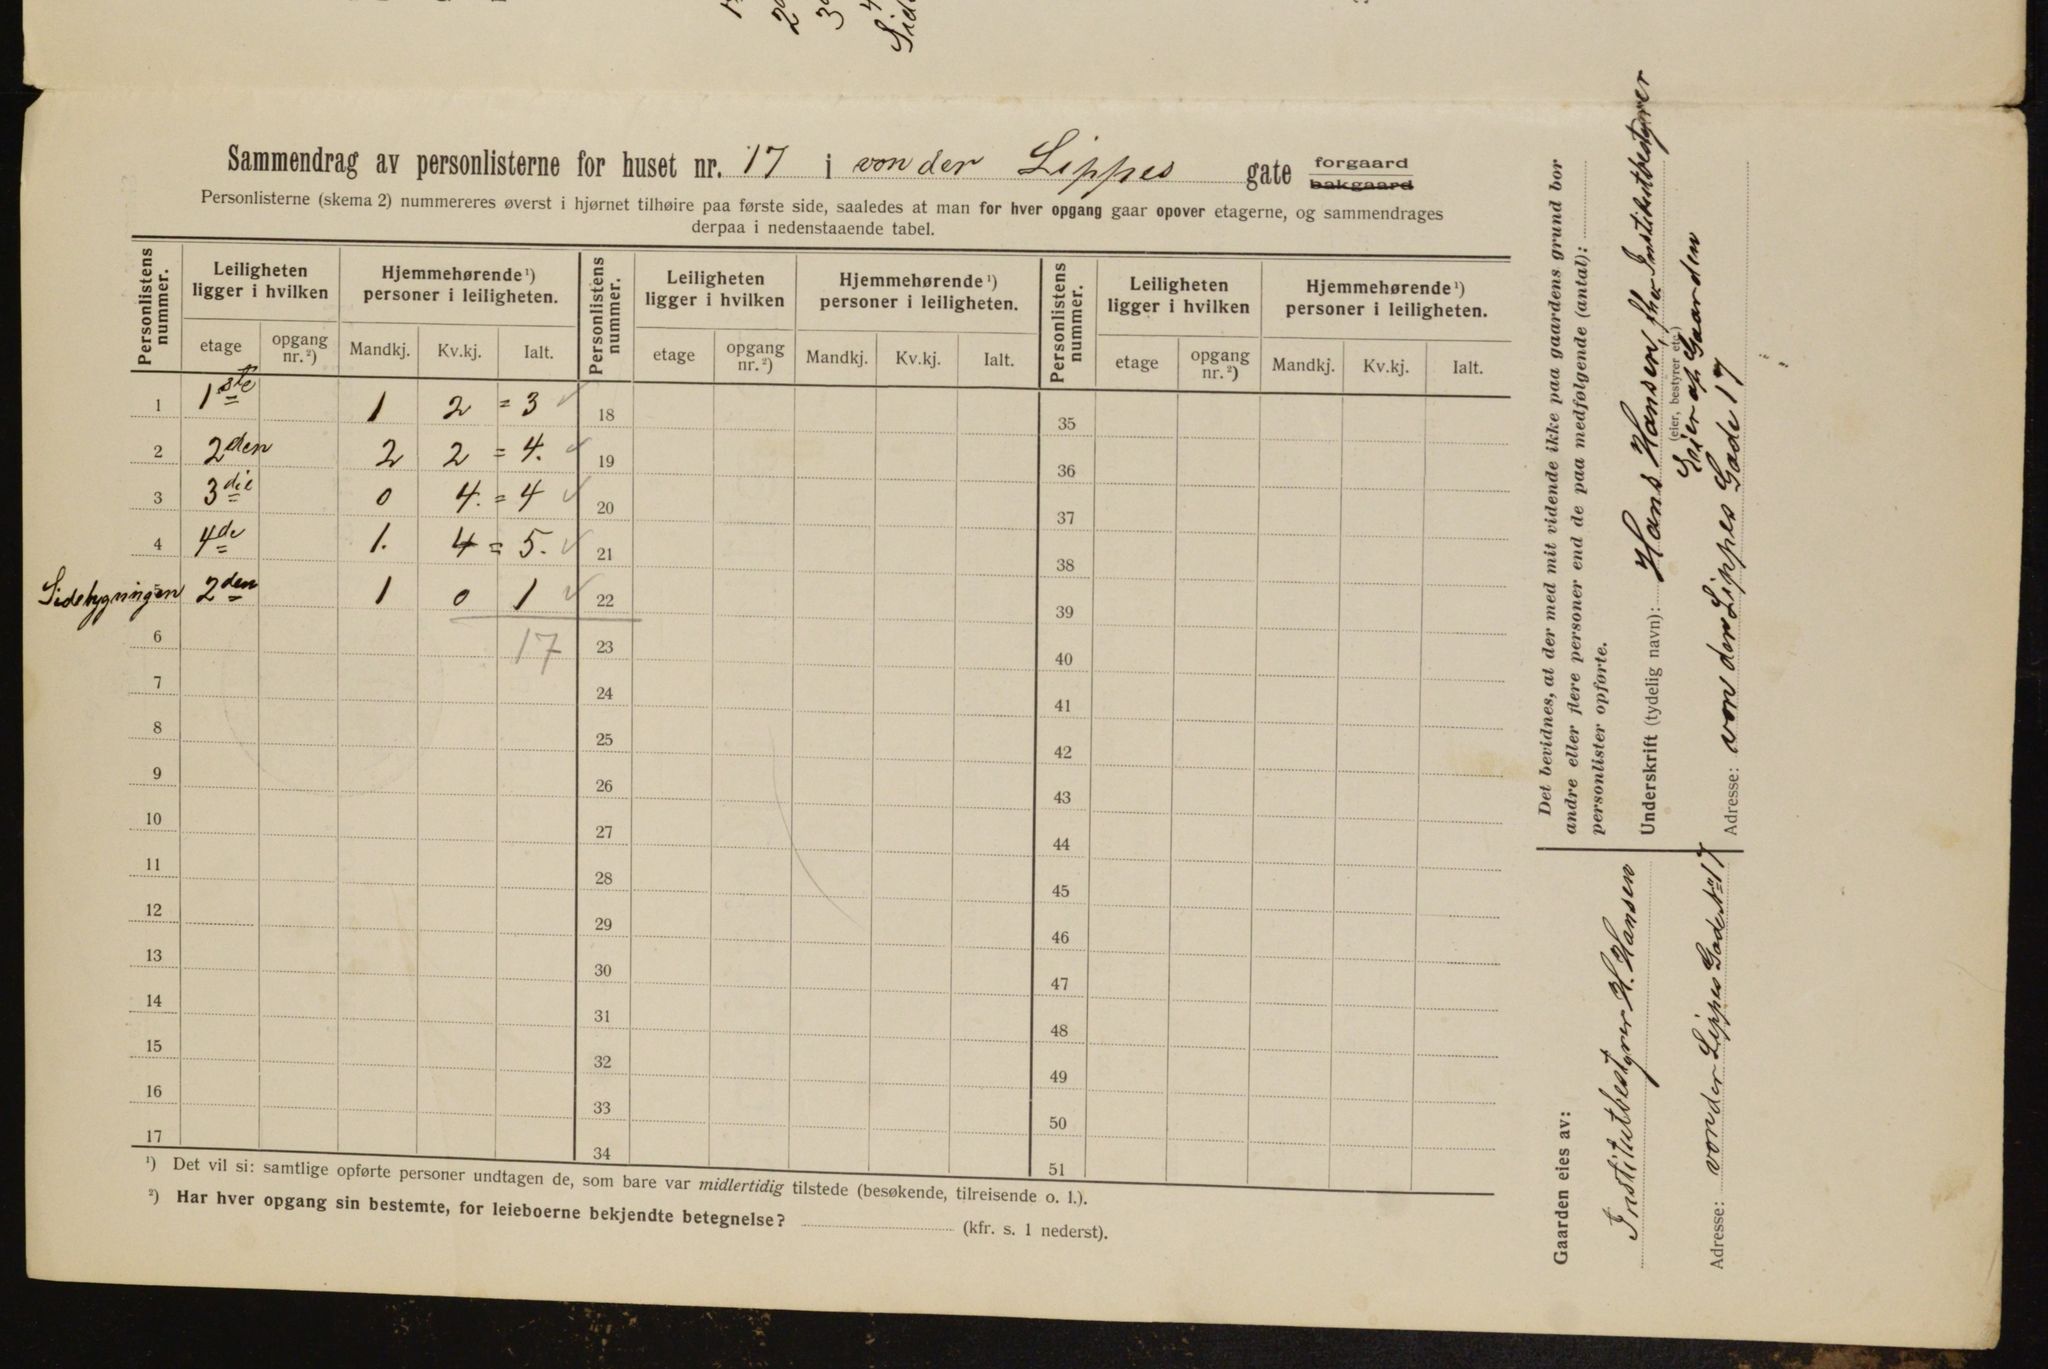 Sammendrag av personlisterne for huset nr. 17 i von der Lippes gate forgaard bakgaard
Personlisterne (skema 2) nummereres øverst i hjørnet tilhøire paa første side, saaledes at man for hver opgang gaar opover etagerne, og sammendrages
derpaa i nedenstaaende tabel.
Personlistens nummer. Leiligheten ligger i hvilken Hjemmehørende ¹) personer i leiligheten. Personlistens nummer. Leiligheten ligger i hvilken Hjemmehørende ¹) personer i leiligheten. Personlistens nummer. Leiligheten ligger i hvilken Hjemmehørende ¹) personer i leiligheten.
etage opgang nr. ²) Mandkj. Kv.kj. Ialt. etage opgang nr. ²) Mandkj. Kv.kj. Ialt. etage opgang nr. ²) Mandkj. Kv.kj. Ialt.
1 1ste 1 2 = 3 ✓ 18 35
2 2den 2 2 = 4. ✓ 19 36
3 3die 0 4. = 4 ✓ 20 37
4 4de 1. 4 = 5. ✓ 21 38
Sidebygningen 2den 1 0 1 ✓ 22 39
6 17 23 40
7 24 41
8 25 42
9 26 43
10 27 44
11 28 45
12 29 46
13 30 47
14 31 48
15 32 49
16 33 50
17 34 51
¹) Det vil si: samtlige opførte personer undtagen de, som bare var midlertidig tilstede (besøkende, tilreisende o. l.).
²) Har hver opgang sin bestemte, for leieboerne bekjendte betegnelse? (kfr. s. 1 nederst).
Det bevidnes, at der med mit vidende ikke paa gaardens grund bor
andre eller flere personer end de paa medfølgende (antal):
personlister opførte.
Underskrift (tydelig navn): Hans Hansen, fhv Institutbestyrer
(eier, bestyrer etc.)
Eier af Gaarden
Adresse: von der Lippes Gade 17
Gaarden eies av:
Institutbestyrer H. Hansen
Adresse: von der Lippes Gade No 17